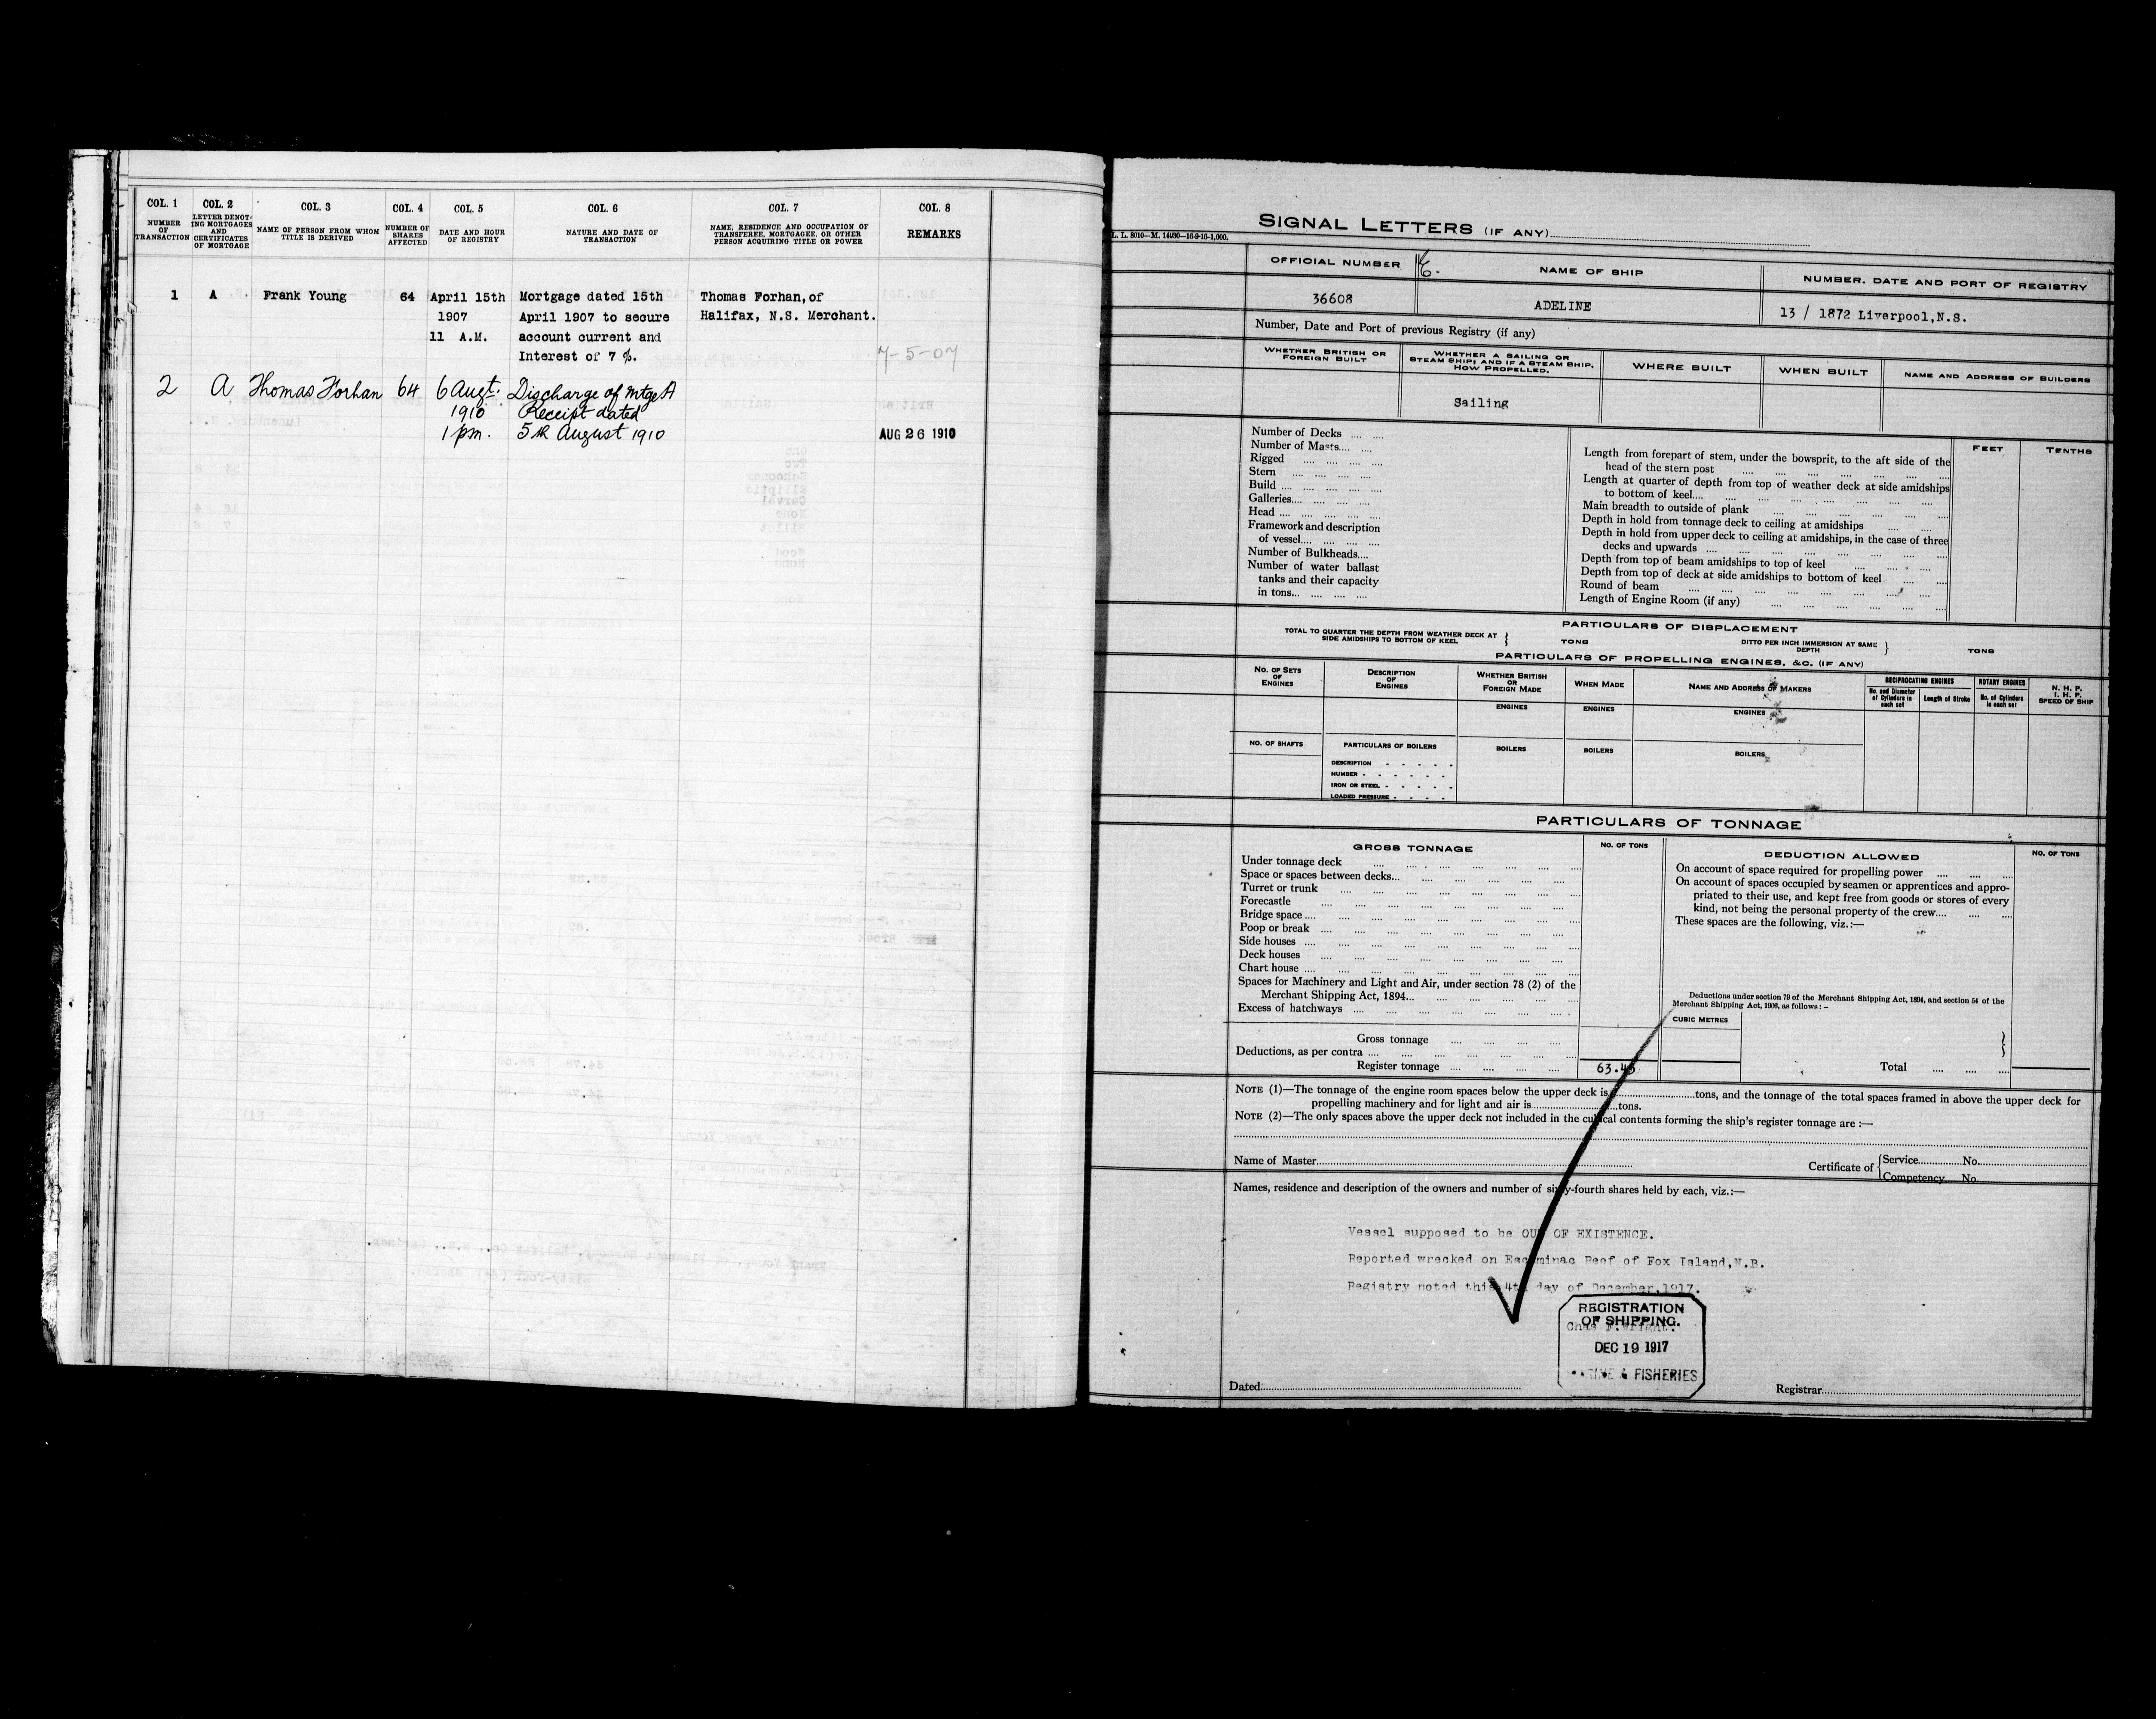 COL. 1 COL. 2 COL. 3 COL. 4 COL. 5 COL. 6 COL. 7 COL. 8
NUMBER OF TRANSACTION
LETTER DENOTING MORTGAGES AND CERTIFICATES OF MORTGAGE
NAME OF PERSON FROM WHOM TITLE IS DERIVED
NUMBER OF SHARES AFFECTED
DATE AND HOUR OF REGISTRY
NATURE AND DATE OF TRANSACTION
NAME, RESIDENCE AND OCCUPATION OF TRANSFEREE, MORTGAGEE, OR OTHER PERSON ACQUIRING TITLE OR POWER
REMARKS
1 A Frank Young 64 April 15th Mortgage dated 15th Thomas Forhan, of
1907 April 1907 to secure Halifax, N.S. Merchant.
11 A.M. account current and
Interest of 7 %. 7-5-07
2 A Thomas Forhan 64 6 Augt. Discharge of Mtge A
1910 Receipt dated
1 pm. 5th August 1910 AUG 26 1910
SIGNAL LETTERS (IF ANY)
L. L. 8010—M. 14030—16-9-16-1,000.
OFFICIAL NUMBER NAME OF SHIP NUMBER, DATE AND PORT OF REGISTRY
36608 ADELINE 13 / 1872 Liverpool, N.S.
Number, Date and Port of previous Registry (if any)
WHETHER BRITISH OR FOREIGN BUILT
WHETHER A SAILING OR STEAM SHIP; AND IF A STEAM SHIP, HOW PROPELLED.
WHERE BUILT WHEN BUILT NAME AND ADDRESS OF BUILDERS
Sailing
Number of Decks .... ....
Number of Masts.... ....
Rigged .... .... .... ....
Stern .... .... .... ....
Build .... .... .... .... ....
Galleries.... .... .... ....
Head .... .... .... .... ....
Framework and description
of vessel.... .... .... ....
Number of Bulkheads....
Number of water ballast
tanks and their capacity
in tons... .... .... ....
FEET TENTHS
Length from forepart of stem, under the bowsprit, to the aft side of the
head of the stern post
Length at quarter of depth from top of weather deck at side amidships
to bottom of keel....
Main breadth to outside of plank
Depth in hold from tonnage deck to ceiling at amidships
Depth in hold from upper deck to ceiling at amidships, in the case of three
decks and upwards
Depth from top of beam amidships to top of keel
Depth from top of deck at side amidships to bottom of keel
Round of beam
Length of Engine Room (if any)
PARTICULARS OF DISPLACEMENT
TOTAL TO QUARTER THE DEPTH FROM WEATHER DECK AT SIDE AMIDSHIPS TO BOTTOM OF KEEL } TONS
DITTO PER INCH IMMERSION AT SAME DEPTH } TONS
PARTICULARS OF PROPELLING ENGINES, &C. (IF ANY)
NO. OF SETS OF ENGINES
DESCRIPTION OF ENGINES
WHETHER BRITISH OR FOREIGN MADE
WHEN MADE
NAME AND ADDRESS OF MAKERS
RECIPROCATING ENGINES
No. and Diameter of Cylinders in each set
Length of Stroke
ROTARY ENGINES
No. of Cylinders in each set
N. H. P.
I. H. P.
SPEED OF SHIP
ENGINES ENGINES ENGINES
NO. OF SHAFTS PARTICULARS OF BOILERS BOILERS BOILERS BOILERS
DESCRIPTION
NUMBER
IRON OR STEEL
LOADED PRESSURE
PARTICULARS OF TONNAGE
GROSS TONNAGE NO. OF TONS
Under tonnage deck
Space or spaces between decks...
Turret or trunk
Forecastle
Bridge space
Poop or break
Side houses
Deck houses
Chart house
Spaces for Machinery and Light and Air, under section 78 (2) of the
Merchant Shipping Act, 1894...
Excess of hatchways
Gross tonnage
Deductions, as per contra
Register tonnage
DEDUCTION ALLOWED NO. OF TONS
On account of space required for propelling power
On account of spaces occupied by seamen or apprentices and appro-
priated to their use, and kept free from goods or stores of every
kind, not being the personal property of the crew....
These spaces are the following, viz.:—
Deductions under section 79 of the Merchant Shipping Act, 1894, and section 54 of the
Merchant Shipping Act, 1906, as follows:—
CUBIC METRES
Total
NOTE (1)—The tonnage of the engine room spaces below the upper deck is ..........tons, and the tonnage of the total spaces framed in above the upper deck for
propelling machinery and for light and air is..........tons.
NOTE (2)—The only spaces above the upper deck not included in the cubical contents forming the ship's register tonnage are :—
Name of Master
Certificate of { Service No.
Competency No.
Names, residence and description of the owners and number of sixty-fourth shares held by each, viz.:—
Vessel supposed to be OUT OF EXISTENCE.
Reported wrecked on Escuminac Reef of Fox Island, N.B.
Registry noted this 4th day of December, 1917.
REGISTRATION
OF SHIPPING.
Chas F. Wright.
DEC 19 1917
& FISHERIES
Dated Registrar